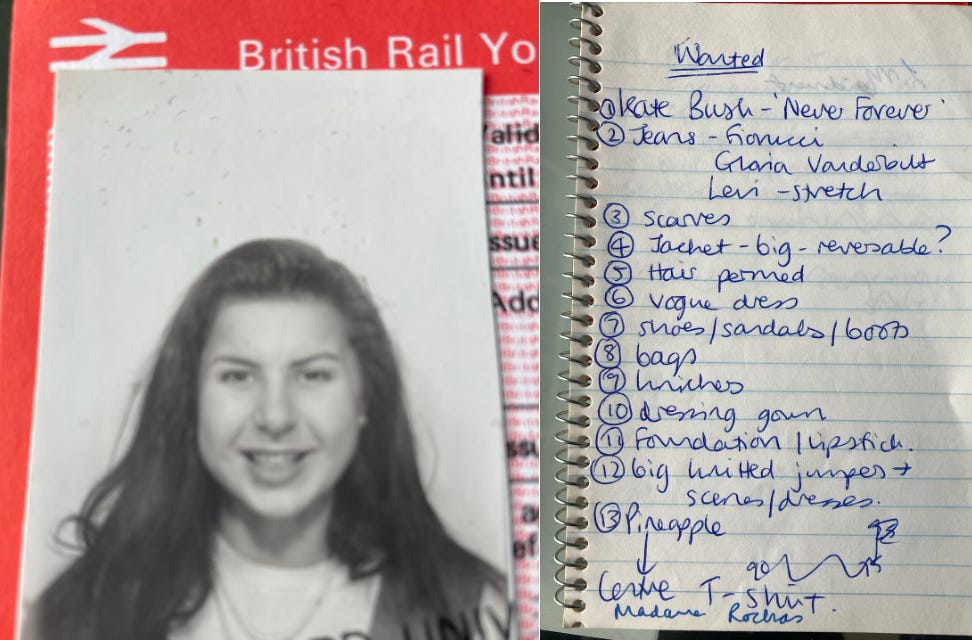 British Rail Yo
Valid
ntil
ssue
Add
UNIV
Wanted
① Kate Bush - 'Never Forever'
② Jeans - Fiorucci
Gloria Vanderbilt
Levi - stretch
③ scarves
④ Jacket - big - reversable?
⑤ Hair permed
⑥ Vogue dress
⑦ shoes/sandals/boots
⑧ bags
⑨ knickers
⑩ dressing gown
⑪ Foundation / lipstick.
⑫ big knitted jumper +
/dresses.
⑬ Pineapple
Centre T-shirt.
Madame Rochas